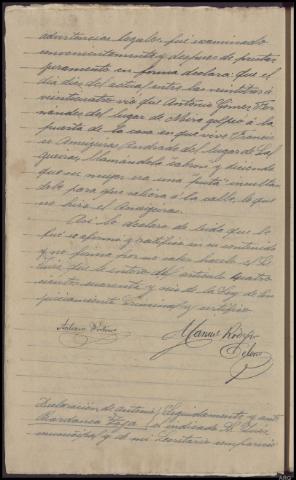 advertencias legales, fué examinado
convenientemente y despues de prestar
juramento en forma declara: que el
dia diez del actual, entre las veintitres á
veinticuatro vió que Antonio Gomez Fer-
nandez del lugar de Meira golpeó á la
puerta de la casa en que vive Francis-
co Amigueras Andrade del lugar de Sal-
gueiras, llamándole cabron y diciendo
que su mujer era una puta insultan-
dole para que saliera á la calle, lo que
no hizo el Amigueras.
Asi lo declara de leida que le
fué se afirma y ratifica en su contenido
y no firma por no saber hacelo el S.
Juez que le enteró del articulo cuatro-
cientos cuarenta y seis de la Ley de En-
juiciamiento Criminal y certifico.
Manuel Rodrigz
Declaracion de Antonio Seguidamente y ante
Bardanca Veja el indicado S. Juez
municipal y de mi Secretario comparecio
ARG